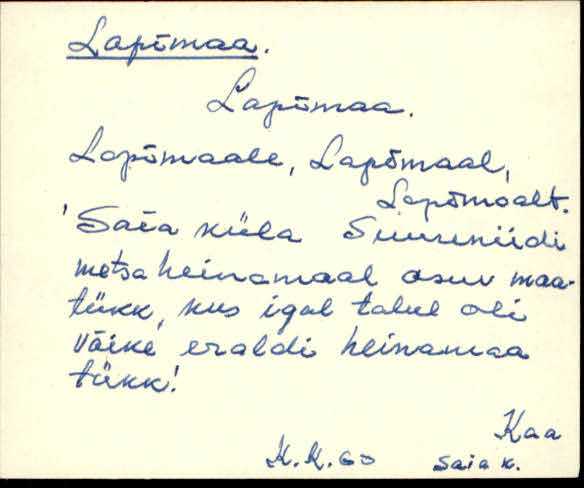 Lapimaa.
Lapimaa.
Lapimaale, Lapimaal,
Lapimaalt.
'Saia küla Suureniidi
metsaheinamaal asuv maa-
tükk, kus igal talul oli
väike eraldi heinamaa
tükk'.
Kaa
K.K. 60 Saia k.